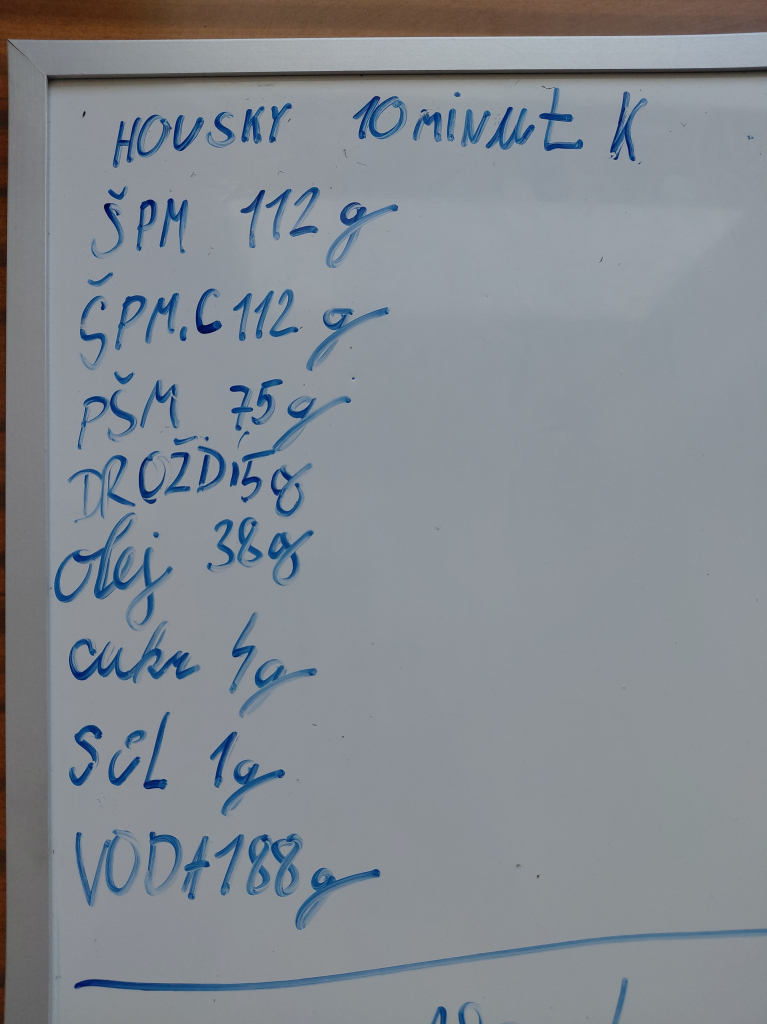 HOUSKY 10minut K
ŠPM 112 g
ŠPM.C 112 g
PŠM 75g
DROŽDÍ 5g
olej 38g
cukr 4g
SůL 1g
VODA 188g